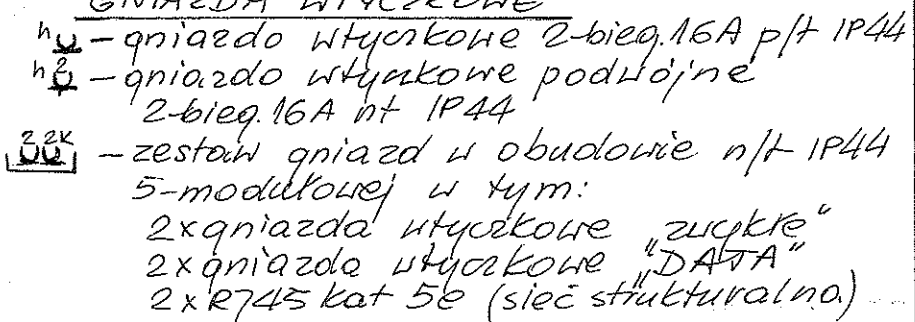 GNIAZDA WTYCZKOWE
h – gniazdo wtyczkowe 2-bieg. 16A p/t IP44
h 2 – gniazdo wtyczkowe podwójne
2-bieg. 16A nt IP44
2 2K – zestaw gniazd w obudowie n/t IP44
5-modułowej w tym:
2x gniazda wtyczkowe "zwykłe"
2x gniazda wtyczkowe "DATA"
2x RJ45 kat 5e (sieć strukturalna)